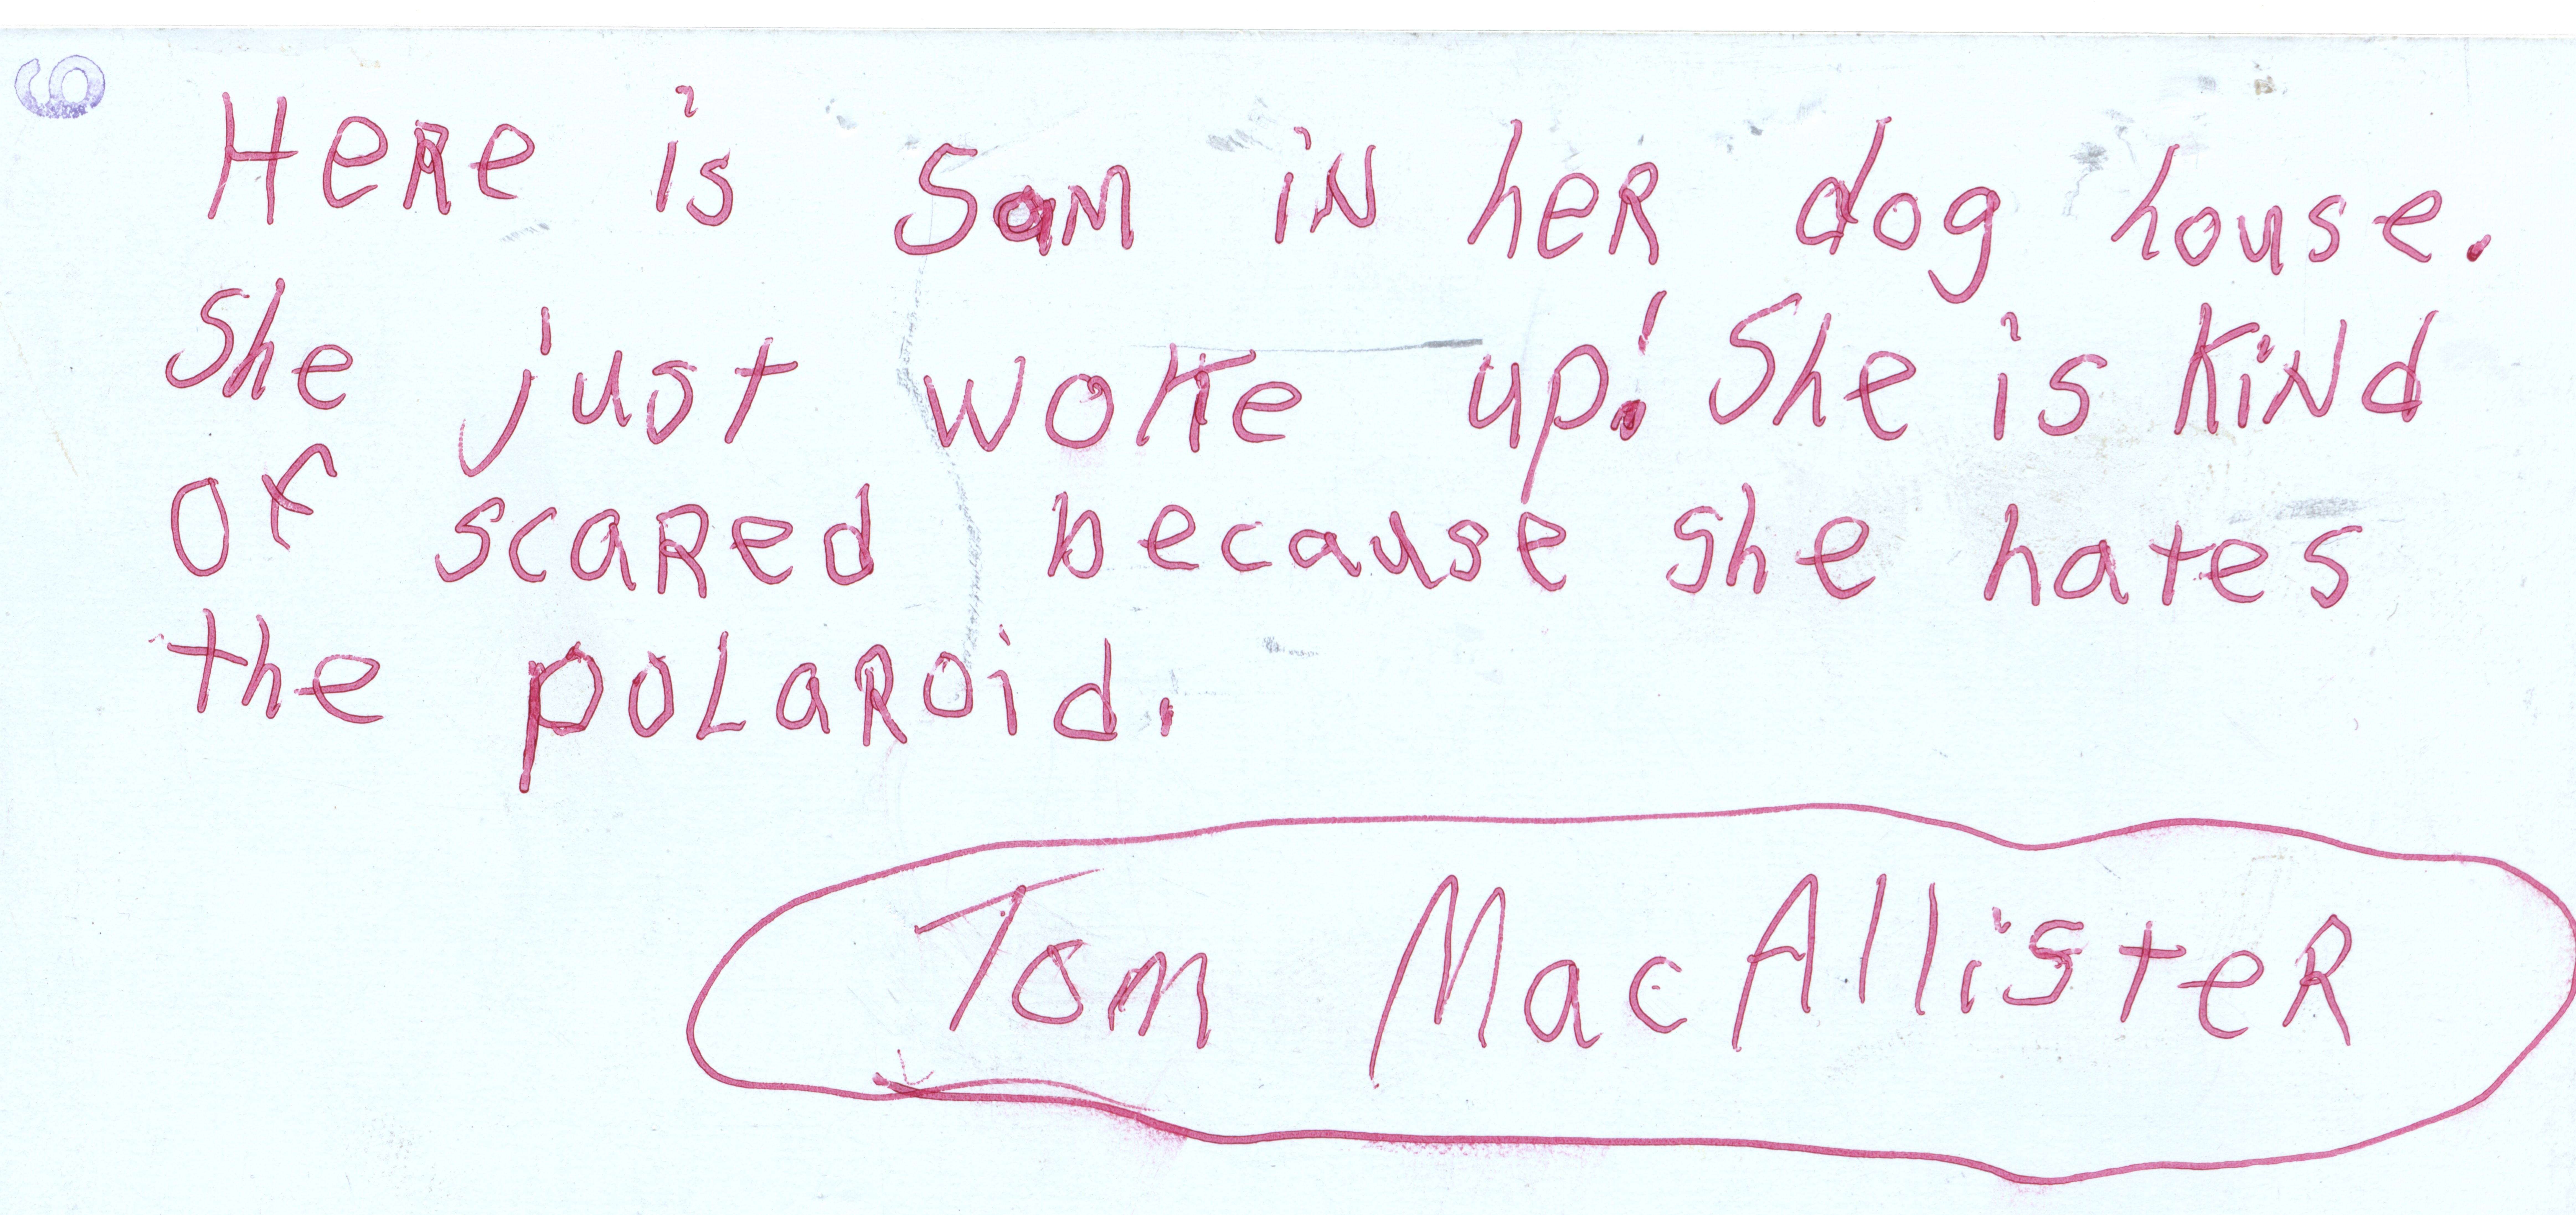 6
HeRe is SaM iN heR dog house.
She just woke up! She is KiNd
of scaRed because she hates
the poLaRoid.
Tom MacAllisteR